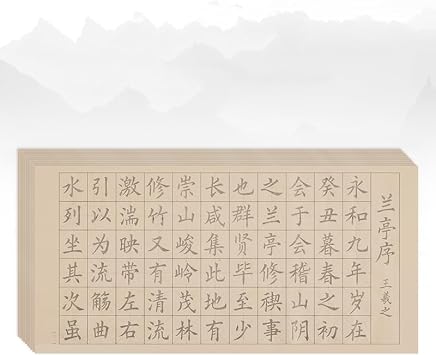 兰亭序
王羲之
永和九年岁在
癸丑暮春之初
会于会稽山阴
之兰亭修禊事
也群贤毕至少
长咸集此地有
崇山峻岭茂林
修竹又有清流
激湍映带左右
引以为流觞曲
水列坐其次虽